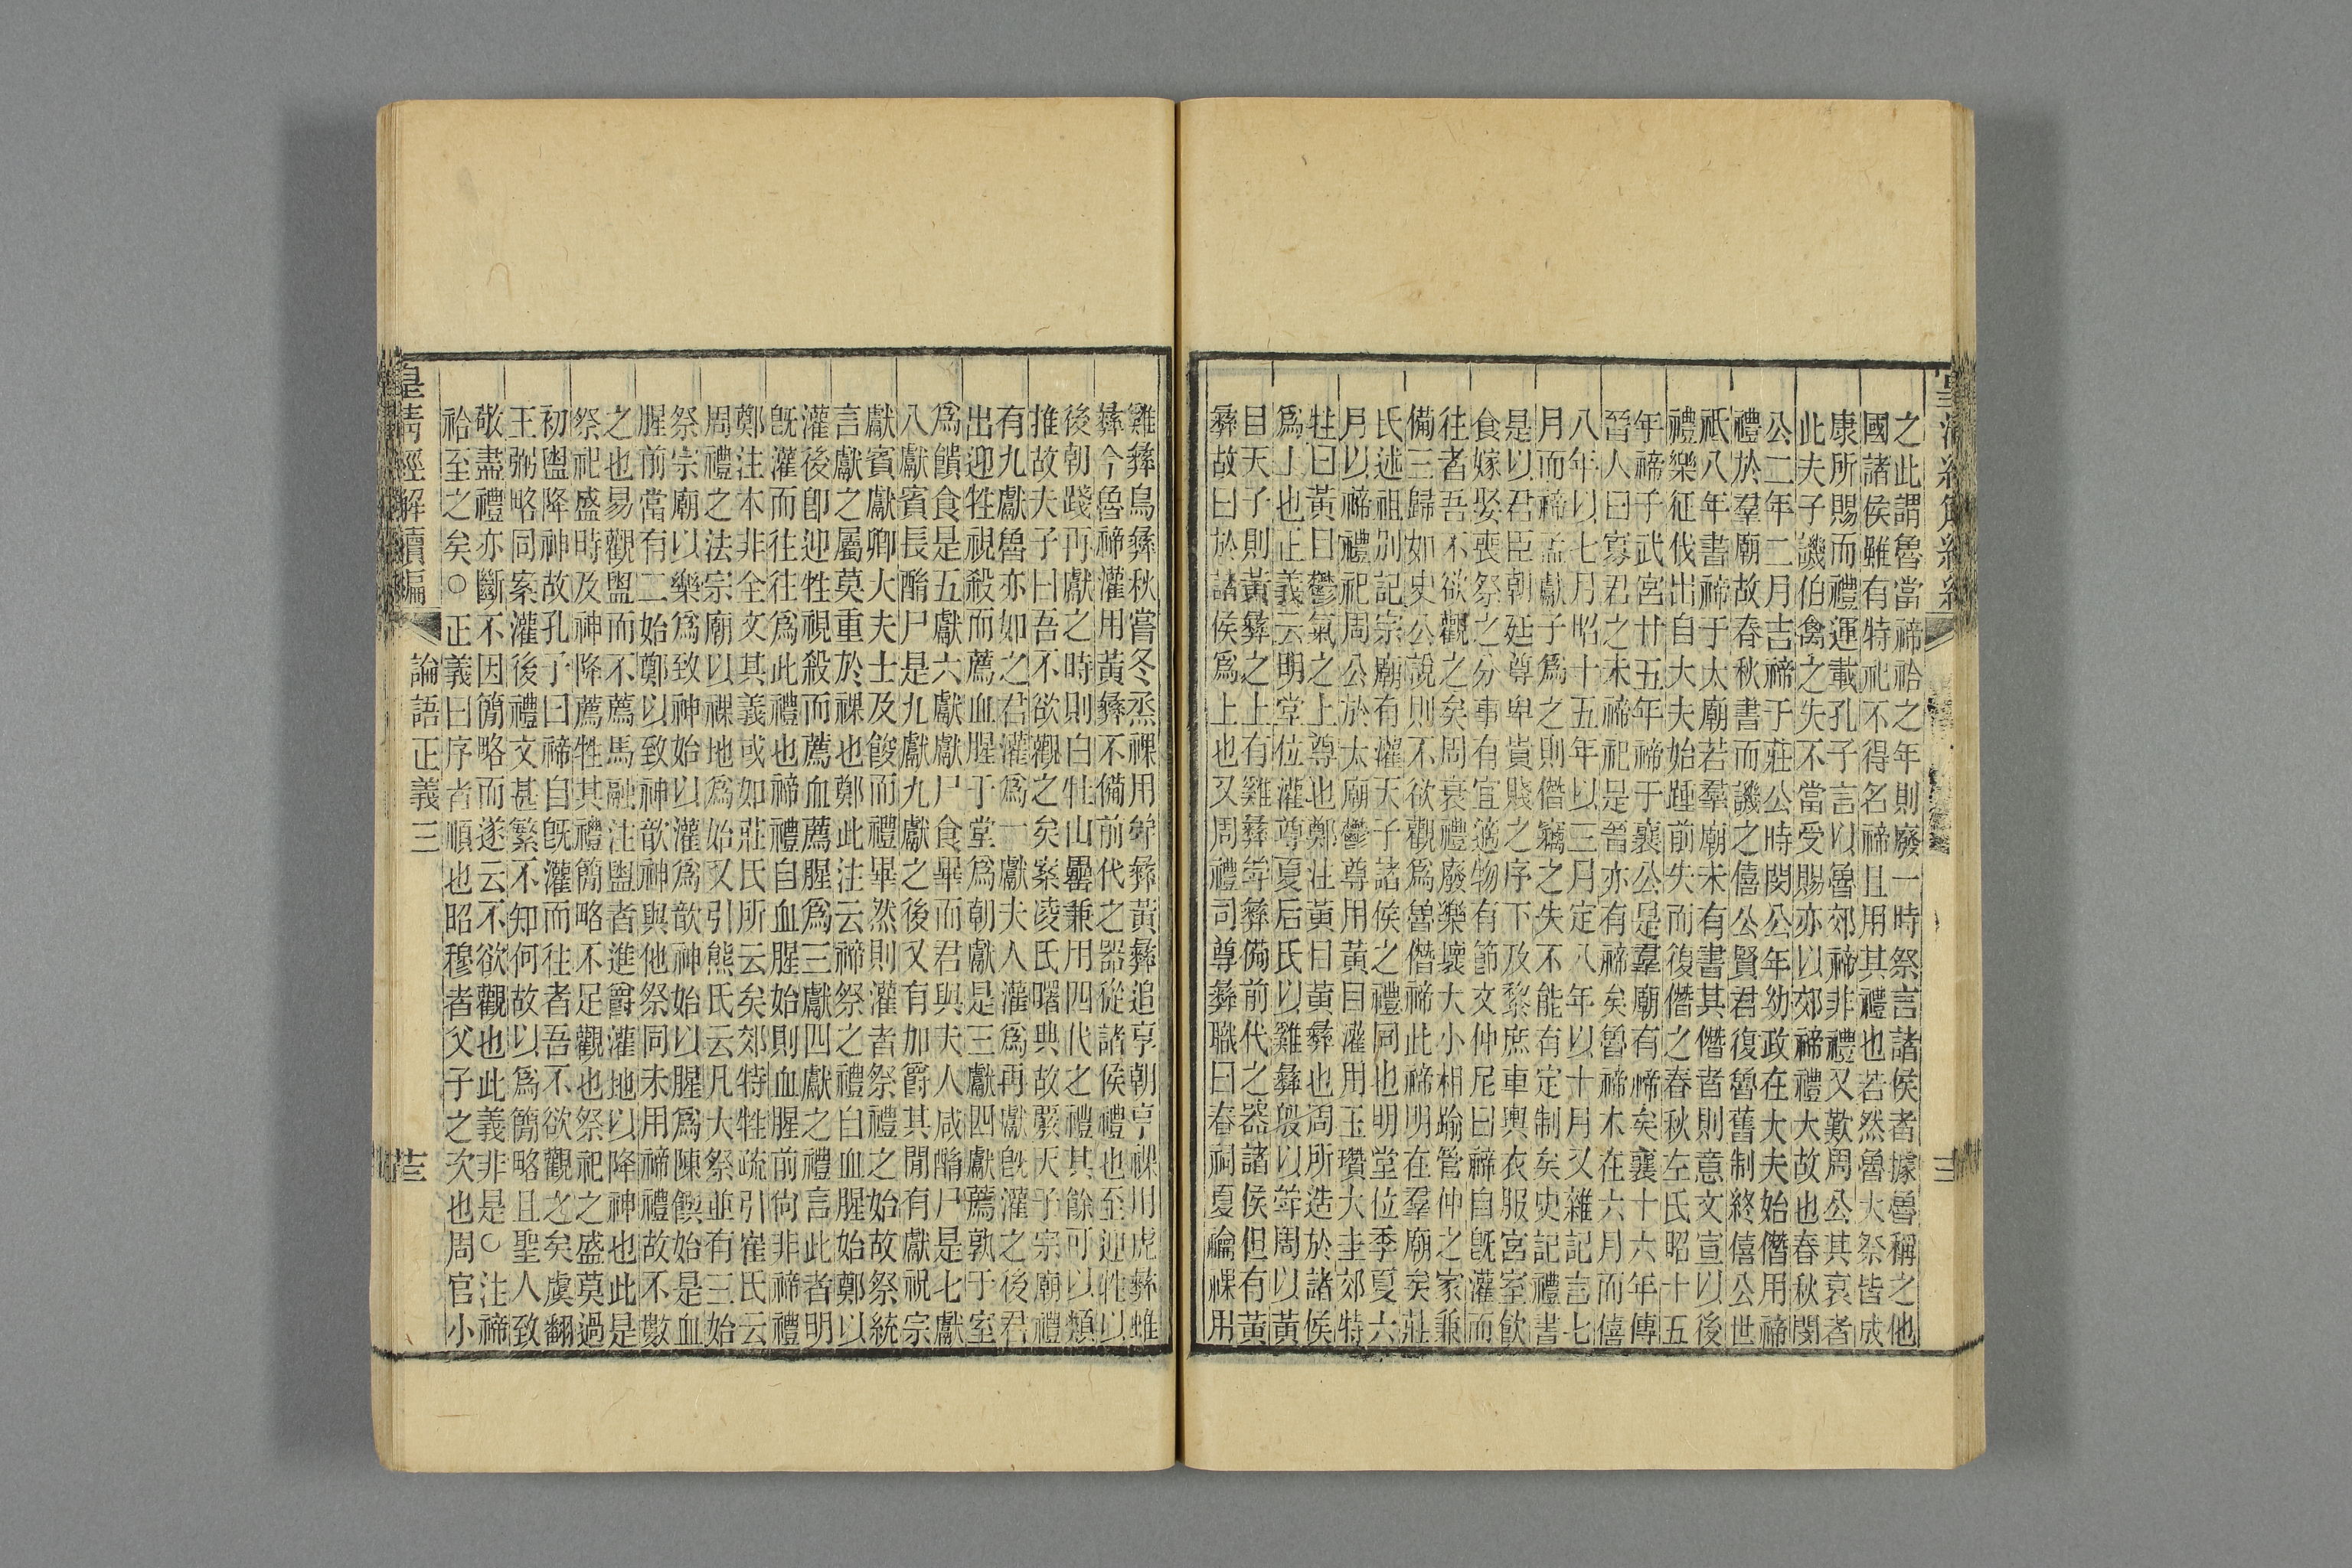 之此謂魯當禘祫之年則廢一時祭言諸侯者據魯稱之他
國諸侯雖有特祀不得名禘且用其禮也若然魯大祭皆成
康所賜而禮運載孔子言以魯郊禘非禮又歎周公其衰者
此夫子譏伯禽之失不當受賜亦以郊禘禮大故也春秋閔
公二年二月吉禘于莊公時閔公年幼政在大夫始僭用禘
禮於羣廟故春秋書而譏之僖公賢君復魯舊制終僖公世
祇八年書禘于太廟若羣廟未有書其僭者則意文宣以後
禮樂征伐出自大夫始踵前失而後僭之春秋左氏昭十五
年禘于武宮廿五年禘于襄公是羣廟有禘矣襄十六年傳
晉人曰寡君之未禘祀是晉亦有禘矣魯禘本在六月而僖
八年以七月昭十五年以三月定八年以十月又雜記言七
月而禘孟獻子爲之則僭竊之失不能有定制矣史記禮書
是以君臣朝廷尊卑貴賤之序下及黎庶車輿衣服宮室飲
食嫁娶喪祭之分事有宜適物有節文仲尼曰禘自旣灌而
往者吾不欲觀之矣周衰禮廢樂壞大小相踰管仲之家兼
備三歸如史公說則不欲觀爲魯僭禘此禘明在羣廟矣莊
氏述祖別記宗廟有灌天子諸侯之禮同也明堂位季夏六
月以禘禮祀周公於太廟鬱尊用黃目灌用玉瓚大圭郊特
牲曰黃目鬱氣之上尊也鄭注黃目黃彝也周所造於諸侯
爲上也正義云明堂位灌尊夏后氏以雞彝殷以斝周以黃
目天子則黃彝之上有雞彝斝彝備前代之器諸侯但有黃
彝故曰於諸侯爲上也又周禮司尊彝職曰春祠夏禴祼用
雞彝鳥彝秋嘗冬烝祼用斝彝黃彝追享朝享祼用虎彝蜼
彝今魯禘灌用黃彝不備前代之器從諸侯禮也至迎牲以
後朝踐再獻之時則白牡山罍兼用四代之禮其餘可以類
推故夫子曰吾不欲觀之矣案凌氏曙典故覈天子宗廟禮
有九獻魯亦如之君灌爲一獻夫人灌爲再獻旣灌之後君
出迎牲視殺而薦血腥于堂爲朝獻是三獻四獻薦孰于室
爲饋食是五獻六獻獻尸食畢而君與夫人咸酳尸是七獻
八獻賓長酳尸是九獻九獻之後又有加爵其閒有獻祝宗
獻賓獻卿大夫士及餕而禮畢然則灌者祭禮之始故祭統
言獻之屬莫重於祼也鄭此注云禘祭之禮自血腥始鄭以
灌後卽迎牲視殺而薦血薦腥爲三獻四獻之禮言此者明
旣灌而往往爲此禮也禘禮自血腥始則血腥前尙非禘禮
鄭注本非全文其義或如莊氏所云矣郊特牲疏引崔氏云
周禮之法宗廟以祼地爲始又引熊氏云凡大祭並有三始
祭宗廟以樂爲致神始以灌爲歆神始以腥爲陳饌始是血
腥前當有二始鄭以致神歆神與他祭同未用禘禮故不數
之也易觀盥而不薦馬融注盥者進爵灌地以降神也此是
祭祀盛時及神降薦牲其禮簡略不足觀也祭祀之盛莫過
初盥降神故孔子曰禘自旣灌而往者吾不欲觀之矣虞翻
王弼略同案灌後禮文甚繁不知何故以爲簡略且聖人致
敬盡禮亦斷不因簡略而遂云不欲觀也此義非是○注禘
祫至之矣○正義曰序者順也昭穆者父子之次也周官小
皇淸經解續編
論語正義三